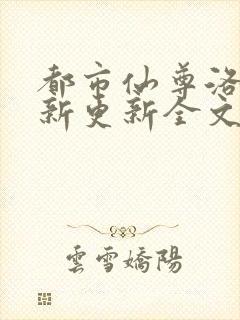 都市仙尊洛
新更新全文
雲雪嬌陽